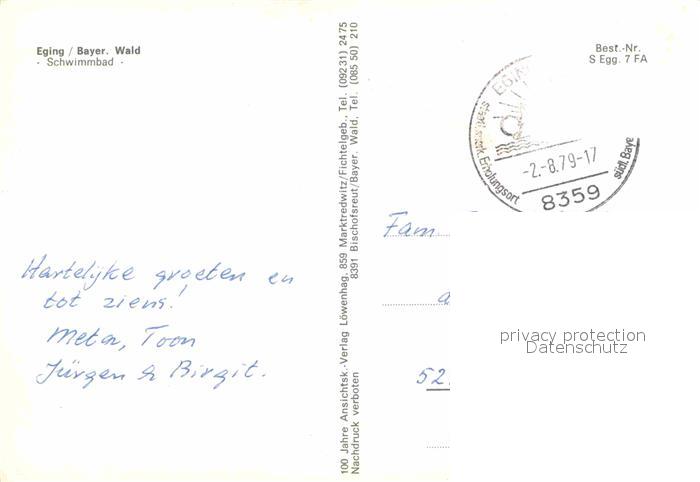 Eging / Bayer. Wald
- Schwimmbad -
Hartelijke groeten en
tot ziens!
Meta, Toon
Jürgen & Birgit.
100 Jahre Ansichtsk.-Verlag Löwenhag, 859 Marktredwitz/Fichtelgeb., Tel. (09231) 2475
8391 Bischofsreut/Bayer. Wald, Tel. (085 50) 210
Nachdruck verboten
Best.-Nr.
S Egg. 7 FA
Erholungsort
-2.-8.79-17
südl. Baye
8359
Fam
a
52.
privacy protection
Datenschutz